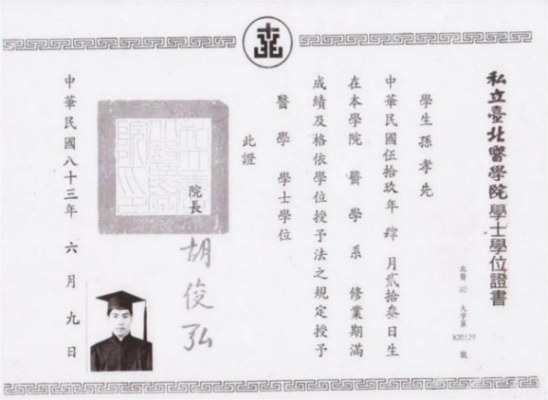 私立臺北醫學院學士學位證書
北醫
大字第
820129
號
學生孫孝先
中華民國伍拾玖年肆月貳拾叁日生
在本學院醫學系修業期滿
成績及格依學位授予法之規定授予
醫學學士學位
此證
院長
胡俊弘
中華民國八十三年六月九日